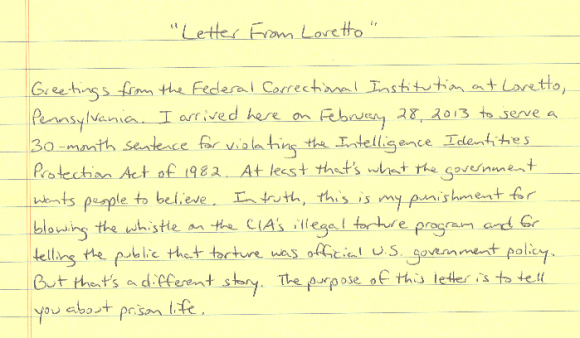 "Letter From Loretto"
Greetings from the Federal Correctional Institution at Loretto,
Pennsylvania. I arrived here on February 28, 2013 to serve a
30-month sentence for violating the Intelligence Identities
Protection Act of 1982. At least that's what the government
wants people to believe. In truth, this is my punishment for
blowing the whistle on the CIA's illegal torture program and for
telling the public that torture was official U.S. government policy.
But that's a different story. The purpose of this letter is to tell
you about prison life.